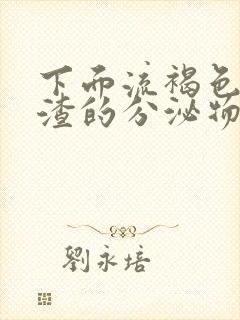 下面流褐色
渣的分泌物
劉永培